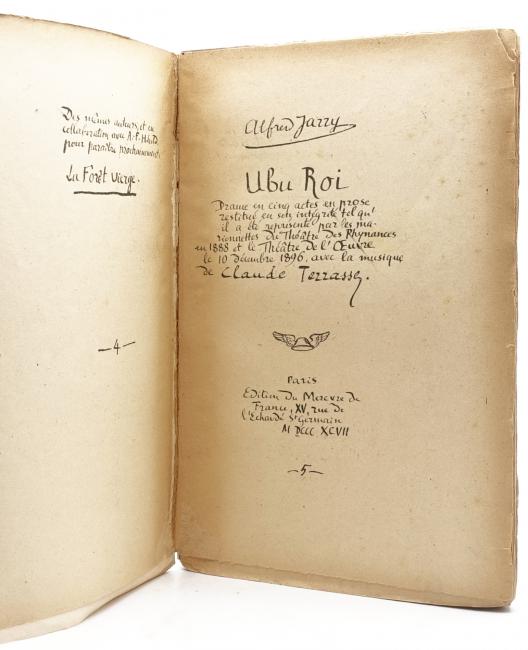 Des mêmes auteurs et en
collaboration avec A.-F. Herold
pour paraître prochainement
La Forêt Vierge.
—4—
Alfred Jarry
Ubu Roi
Drame en cinq actes en prose
restitué en son intégrité tel qu'
il a été représenté par les ma-
rionnettes du Théâtre des Phynances
en 1888 et le Théâtre de l'Œuvre
le 10 Décembre 1896, avec la musique
de Claude Terrasse.
Paris
Edition du Mercvre de
France, XV, rue de
l'Echaudé St Germain
M DCCC XCVII
—5—